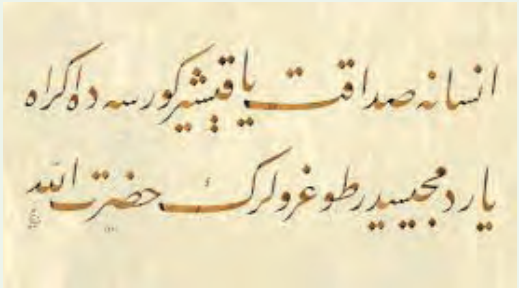 انسانه صداقت ياقيشير كورسه ده اكراه
ياردمجيسيدر طوغرولرك حضرت الله